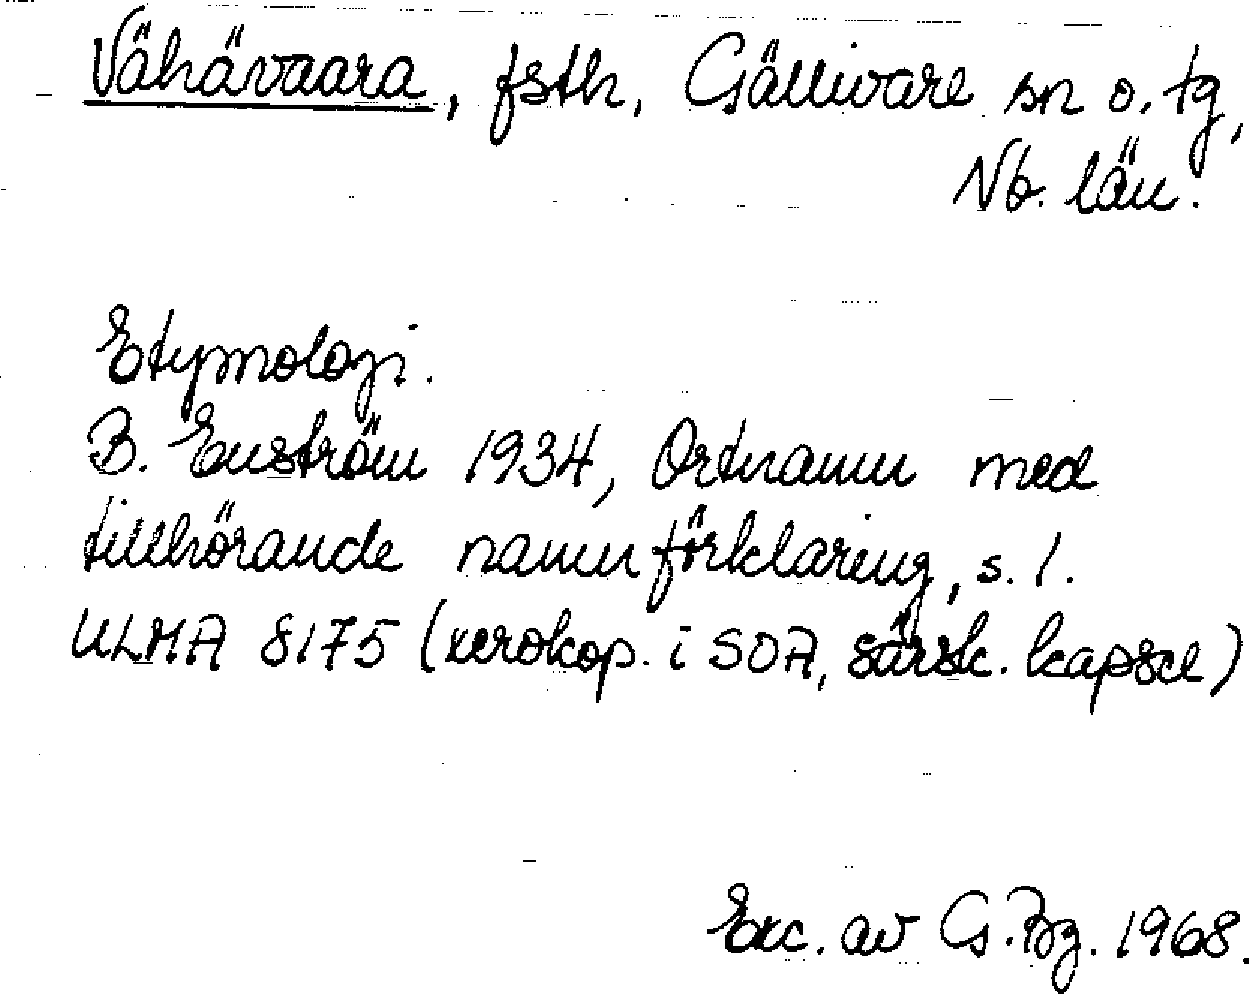 Vähävaara, fsth, Gällivare sn o. tg,
Nb. län.
Etymologi.
B. Enström 1934, Ortnamn med
tillhörande namnförklaring, s. 1.
ULMA 8175 (xerokop. i SOA, särsk. kapsel)
Exc. av G. Bg. 1968.